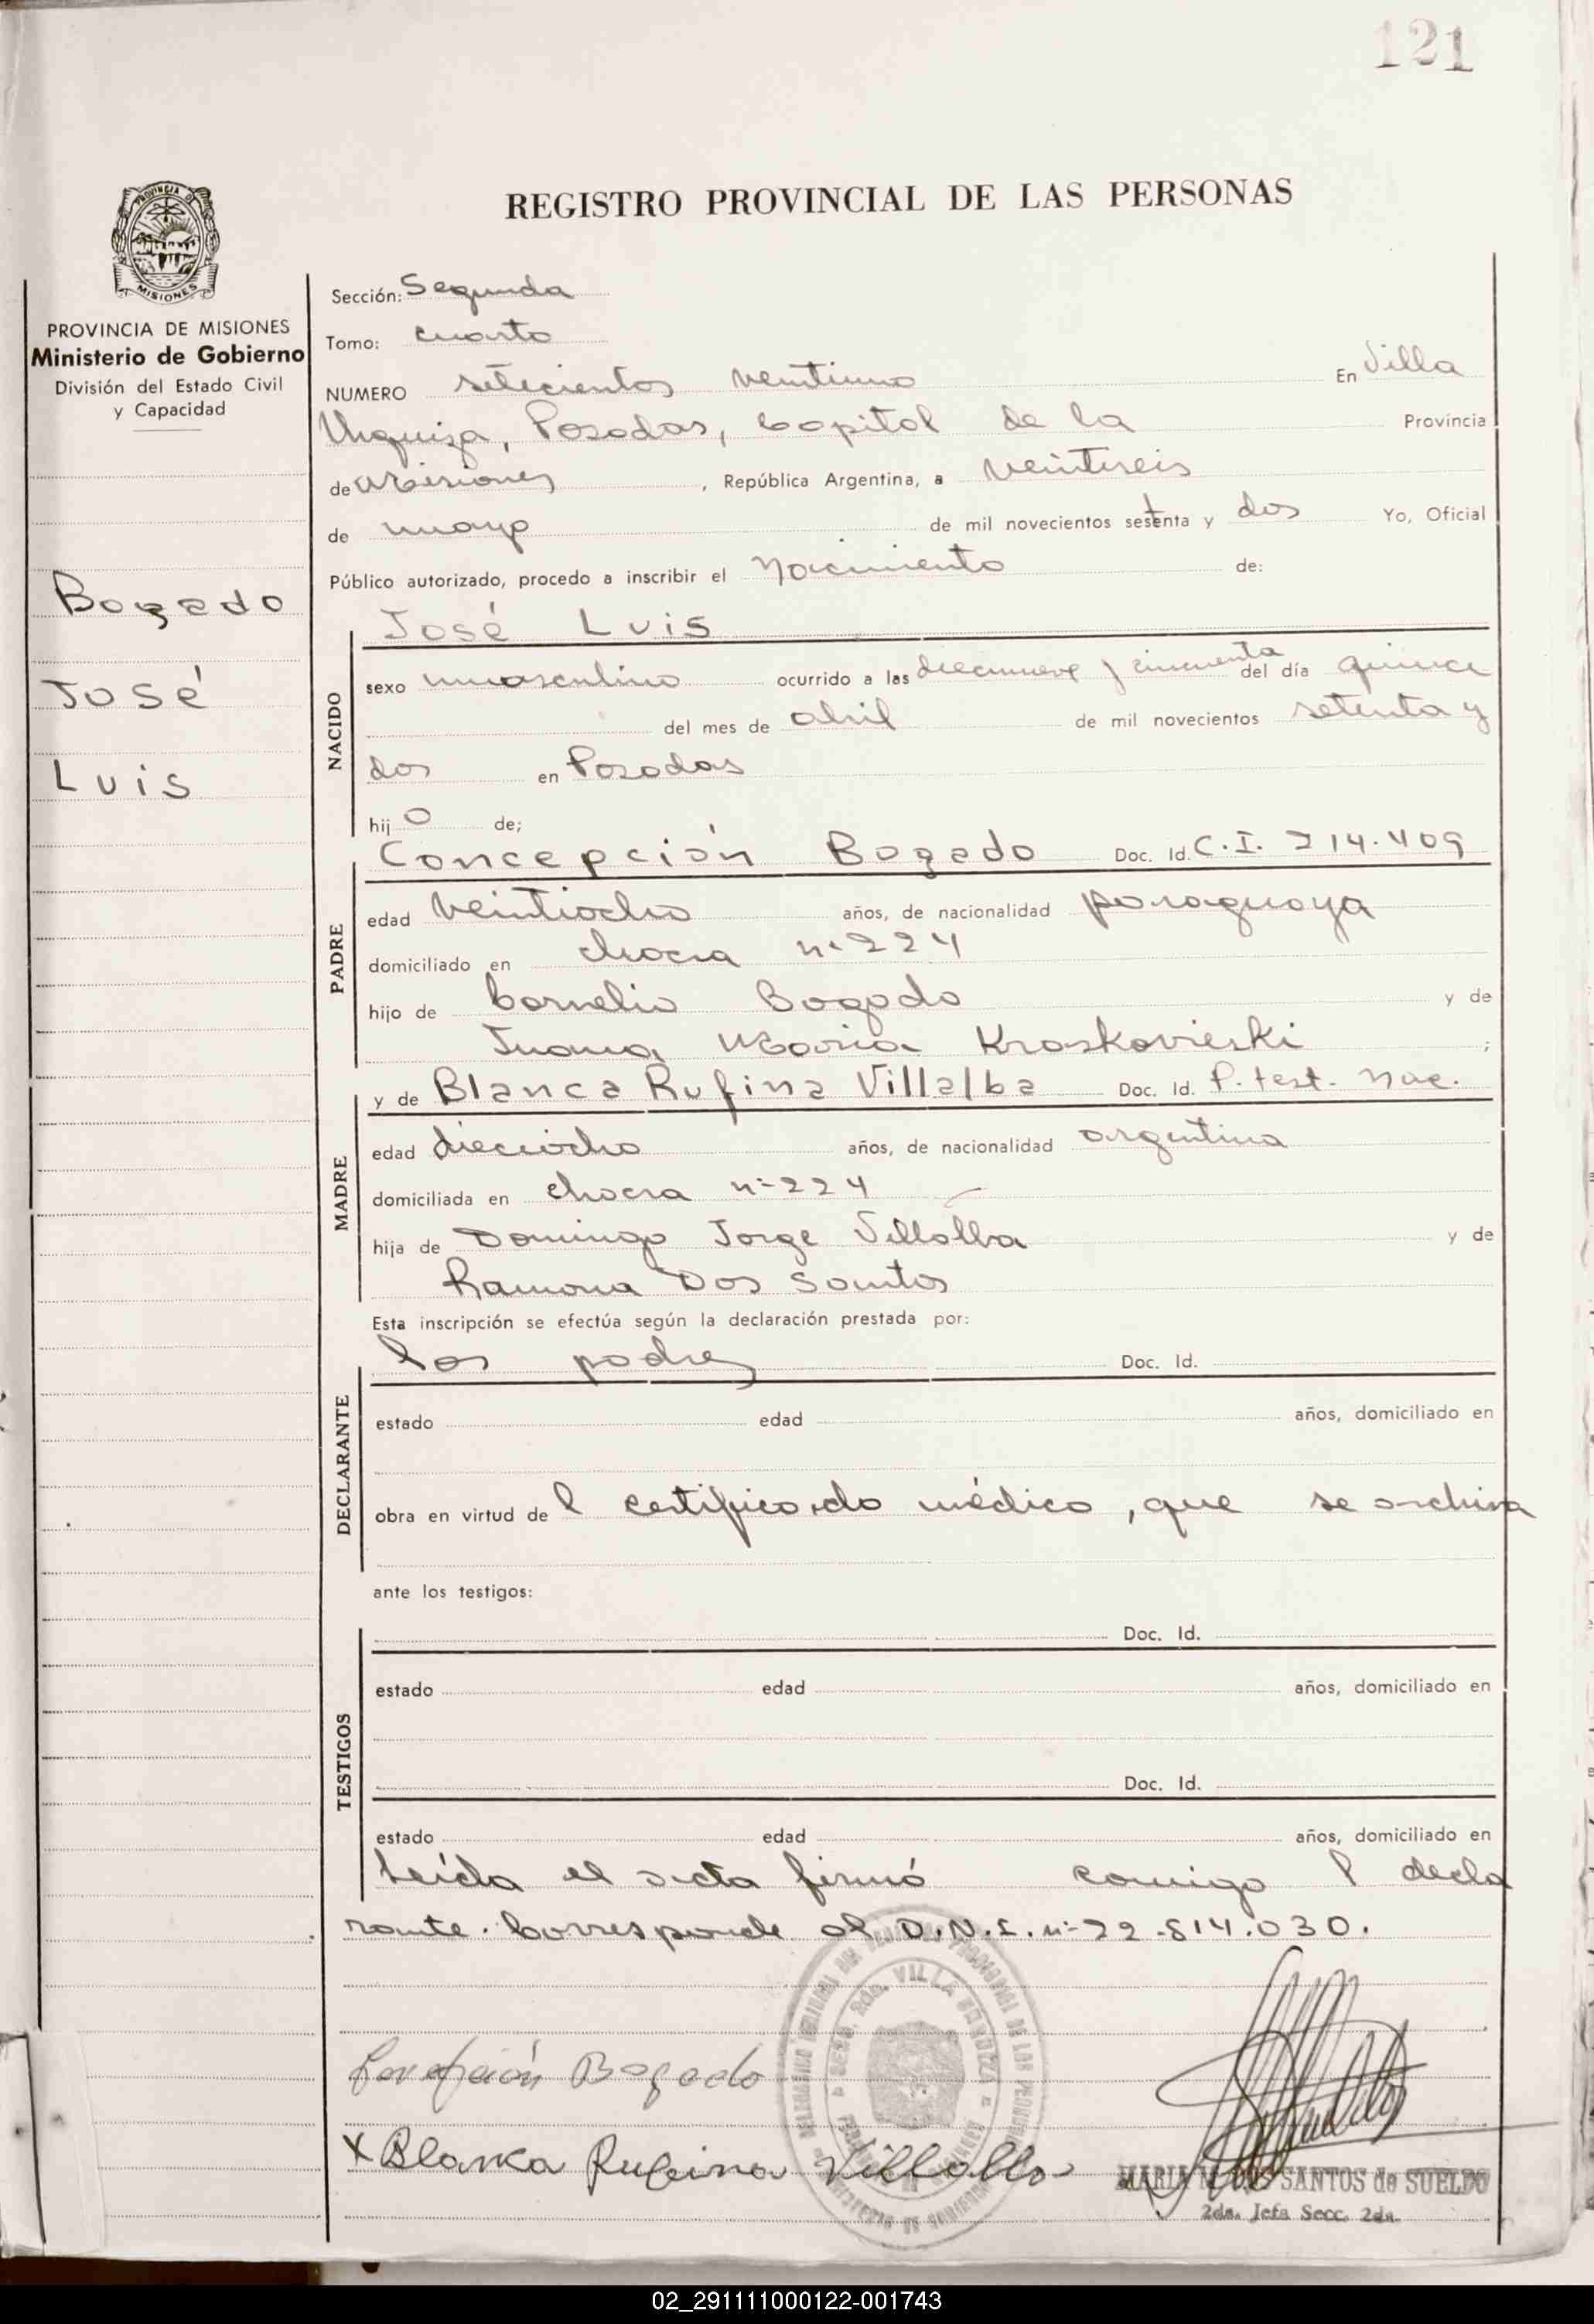 121
REGISTRO PROVINCIAL DE LAS PERSONAS
PROVINCIA DE
MISIONES
PROVINCIA DE MISIONES
Ministerio de Gobierno
División del Estado Civil
y Capacidad
Bogado
José
Luis
Sección: Segunda
Tomo: cuarto
NUMERO setecientos veintiuno En Villa
Urquiza, Posadas, Capital de la Provincia
de Misiones, República Argentina, a veintiseis
de mayo de mil novecientos setenta y dos Yo, Oficial
Público autorizado, procedo a inscribir el Nacimiento de:
José Luis
NACIDO
sexo masculino ocurrido a las diecinueve y cincuenta del día quince
del mes de abril de mil novecientos setenta y
dos en Posadas
hijo de;
Concepción Bogado Doc. Id. C.I. 214.409
PADRE
edad veintiocho años, de nacionalidad paraguaya
domiciliado en chacra nº 224
hijo de Cornelio Bogado y de
Juana María Kroskovieski ;
y de Blanca Rufina Villalba Doc. Id. P. test. nac.
MADRE
edad dieciocho años, de nacionalidad argentina
domiciliada en chacra nº 224
hija de Domingo Jorge Villalba y de
Ramona Dos Santos
Esta inscripción se efectúa según la declaración prestada por:
los padres Doc. Id.
DECLARANTE
estado edad años, domiciliado en
obra en virtud del certificado médico, que se archiva
ante los testigos:
Doc. Id.
TESTIGOS
estado edad años, domiciliado en
Doc. Id.
estado edad años, domiciliado en
Leída el acta firmó comigo l decla
rante. Corresponde al D.N.I. nº 22.814.030.
Concepción Bogado
x Blanca Rufina Villalba
SECC. 2da. VILLA URQUIZA
MARIA DOS SANTOS de SUELDO
2da. Jefa Secc. 2da.
02_291111000122-001743